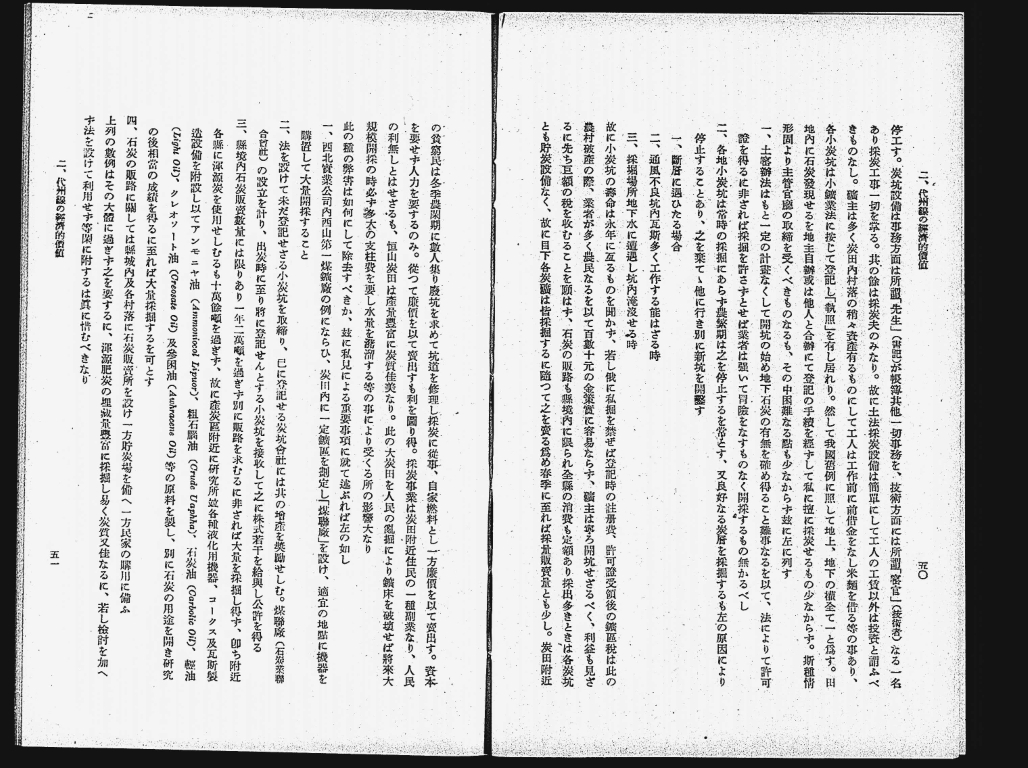 二、代州線の經濟的價値
五〇
停工す。炭坑設備は事務方面は所謂「先生」(書記)が帳簿其他一切事務を、技術方面には所謂「窰官」(技術者)なる一名
あり採炭工事一切を掌る。共の餘は採炭夫のみなり。故に土法採炭設備は簡單にして工人の工賃以外は投資と謂ふべ
きものなし。礦主は多く炭田內村落の稍々資產有るものにして工人は工作前に前借金をなし米麵を借る等の事あり、
各小炭坑は小鑛業法に按じて登記し「執照」を有し居れり。然して我國舊例に照して地上、地下の權全て一と爲す。田
地內に石炭發現せるを地主自辦或は他人と合辦にて登記の手續を經ずして私に擅に採炭せるもの少なからず。斯種情
形固より主管官廳の取締を受くべきものなるも、その中困難なる點も少なからず玆に左に列す
一、土窰辦法はもと一定の計畫なくして開坑の始め地下石炭の有無を確め得ること難事なるを以て、法によりて許可
證を得るに非ざれば採掘を許さずとせば業者は强いて冒險をなすものなく開採するもの無かるべし
二、各地小炭坑は常時の採掘にあらず農繁期は之を停止するを常とす、又良好なる炭層を採掘するも左の原因により
停止することあり、之を棄てゝ他に行き別に新坑を開鑿す
一、斷層に遇ひたる場合
二、通風不良坑內瓦斯多く工作する能はざる時
三、採掘場所地下水に遭遇し坑內淹沒せる時
故に小炭坑の壽命は永年に亙るものを聞かず、若し俄に私掘を禁ぜば登記時の註册費、許可證受領後の鑛區稅は此の
農村破產の際、業者が多く農民なるを以て百數十元の金策實に容易ならず、礦主は寧ろ開坑せざるべく、利益も見ざ
るに先ち巨額の稅を收むることを願はず、石炭の販路も縣境內に限られ全縣の消費も定額あり採出多きときは各炭坑
とも貯炭設備なく、故に目下各炭礦は皆採掘するに隨つて之を賣る爲め春季に至れば採量販賣量とも少し。炭田附近
の貧窮民は冬季農閑期に數人集り廢坑を求めて坑道を修理し採炭に從事、自家燃料とし一方廉價を以て賣出す。資本
を要せず人力を要するのみ。從つて廉價を以て賣出すも利を圖り得。採炭事業は炭田附近住民の一種副業なり、人民
の利無しとはせざるも、恒山炭田は產量豐富に炭質佳美なり。此の大炭田を人民の亂掘により鑛床を破壞せば將來大
規模開採の時必ず多大の支柱費を要し水量を蓄溜する等の事により受くる所の影響大なり
此の種の弊害は如何にして除去すべきか、玆に私見による重要事項に就て述ぶれば左の如し
一、西北實業公司內西山第一煤鑛廠の例にならひ、炭田內に一定鑛區を劃定し「煤聯廠」を設け、適宜の地點に機器を
購置して大量開採すること
二、法を設けて未だ登記せざる小炭坑を取締り、已に登記せる炭坑會社には共の增產を奬勵せしむ。煤聯廠(石炭業聯
合會社)の設立を計り、出炭時に至り將に登記せんとする小炭坑を接收して之に株式若干を給與し公許を得る
三、縣境內石炭販賣數量には限りあり一年二萬噸を過ぎず別に販路を求むるに非ざれば大量を採掘し得ず、卽ち附近
各縣に渾源炭を使用せしむるも十萬餘噸を過ぎず、故に產炭區附近に研究所竝各種液化用機器、コークス及瓦斯製
造設備を附設し以てアンモニヤ油(Ammoniocl Liquor)、粗石腦油(Crude Uaphha)、石炭油(Carbolic Oil)、輕油
(Light Oil)、クレオソート油(Creosate Oil)及參困油(Awhracens Oil)等の原料を製し、別に石炭の用途を開き研究
の後相當の成績を得るに至れば大量採掘するを可とす
四、石炭の販路に關しては縣城內及各村落に石炭販賣所を設け一方貯炭場を備へ一方民家の購用に備ふ
上列の數例はその大體に過ぎず之を要するに、渾源肥炭の埋藏量豐富に採掘し易く炭質又佳なるに、若し檢討を加へ
ず法を設けて利用せず等閑に附するは眞に惜むべきなり
二、代州線の經濟的價値
五一